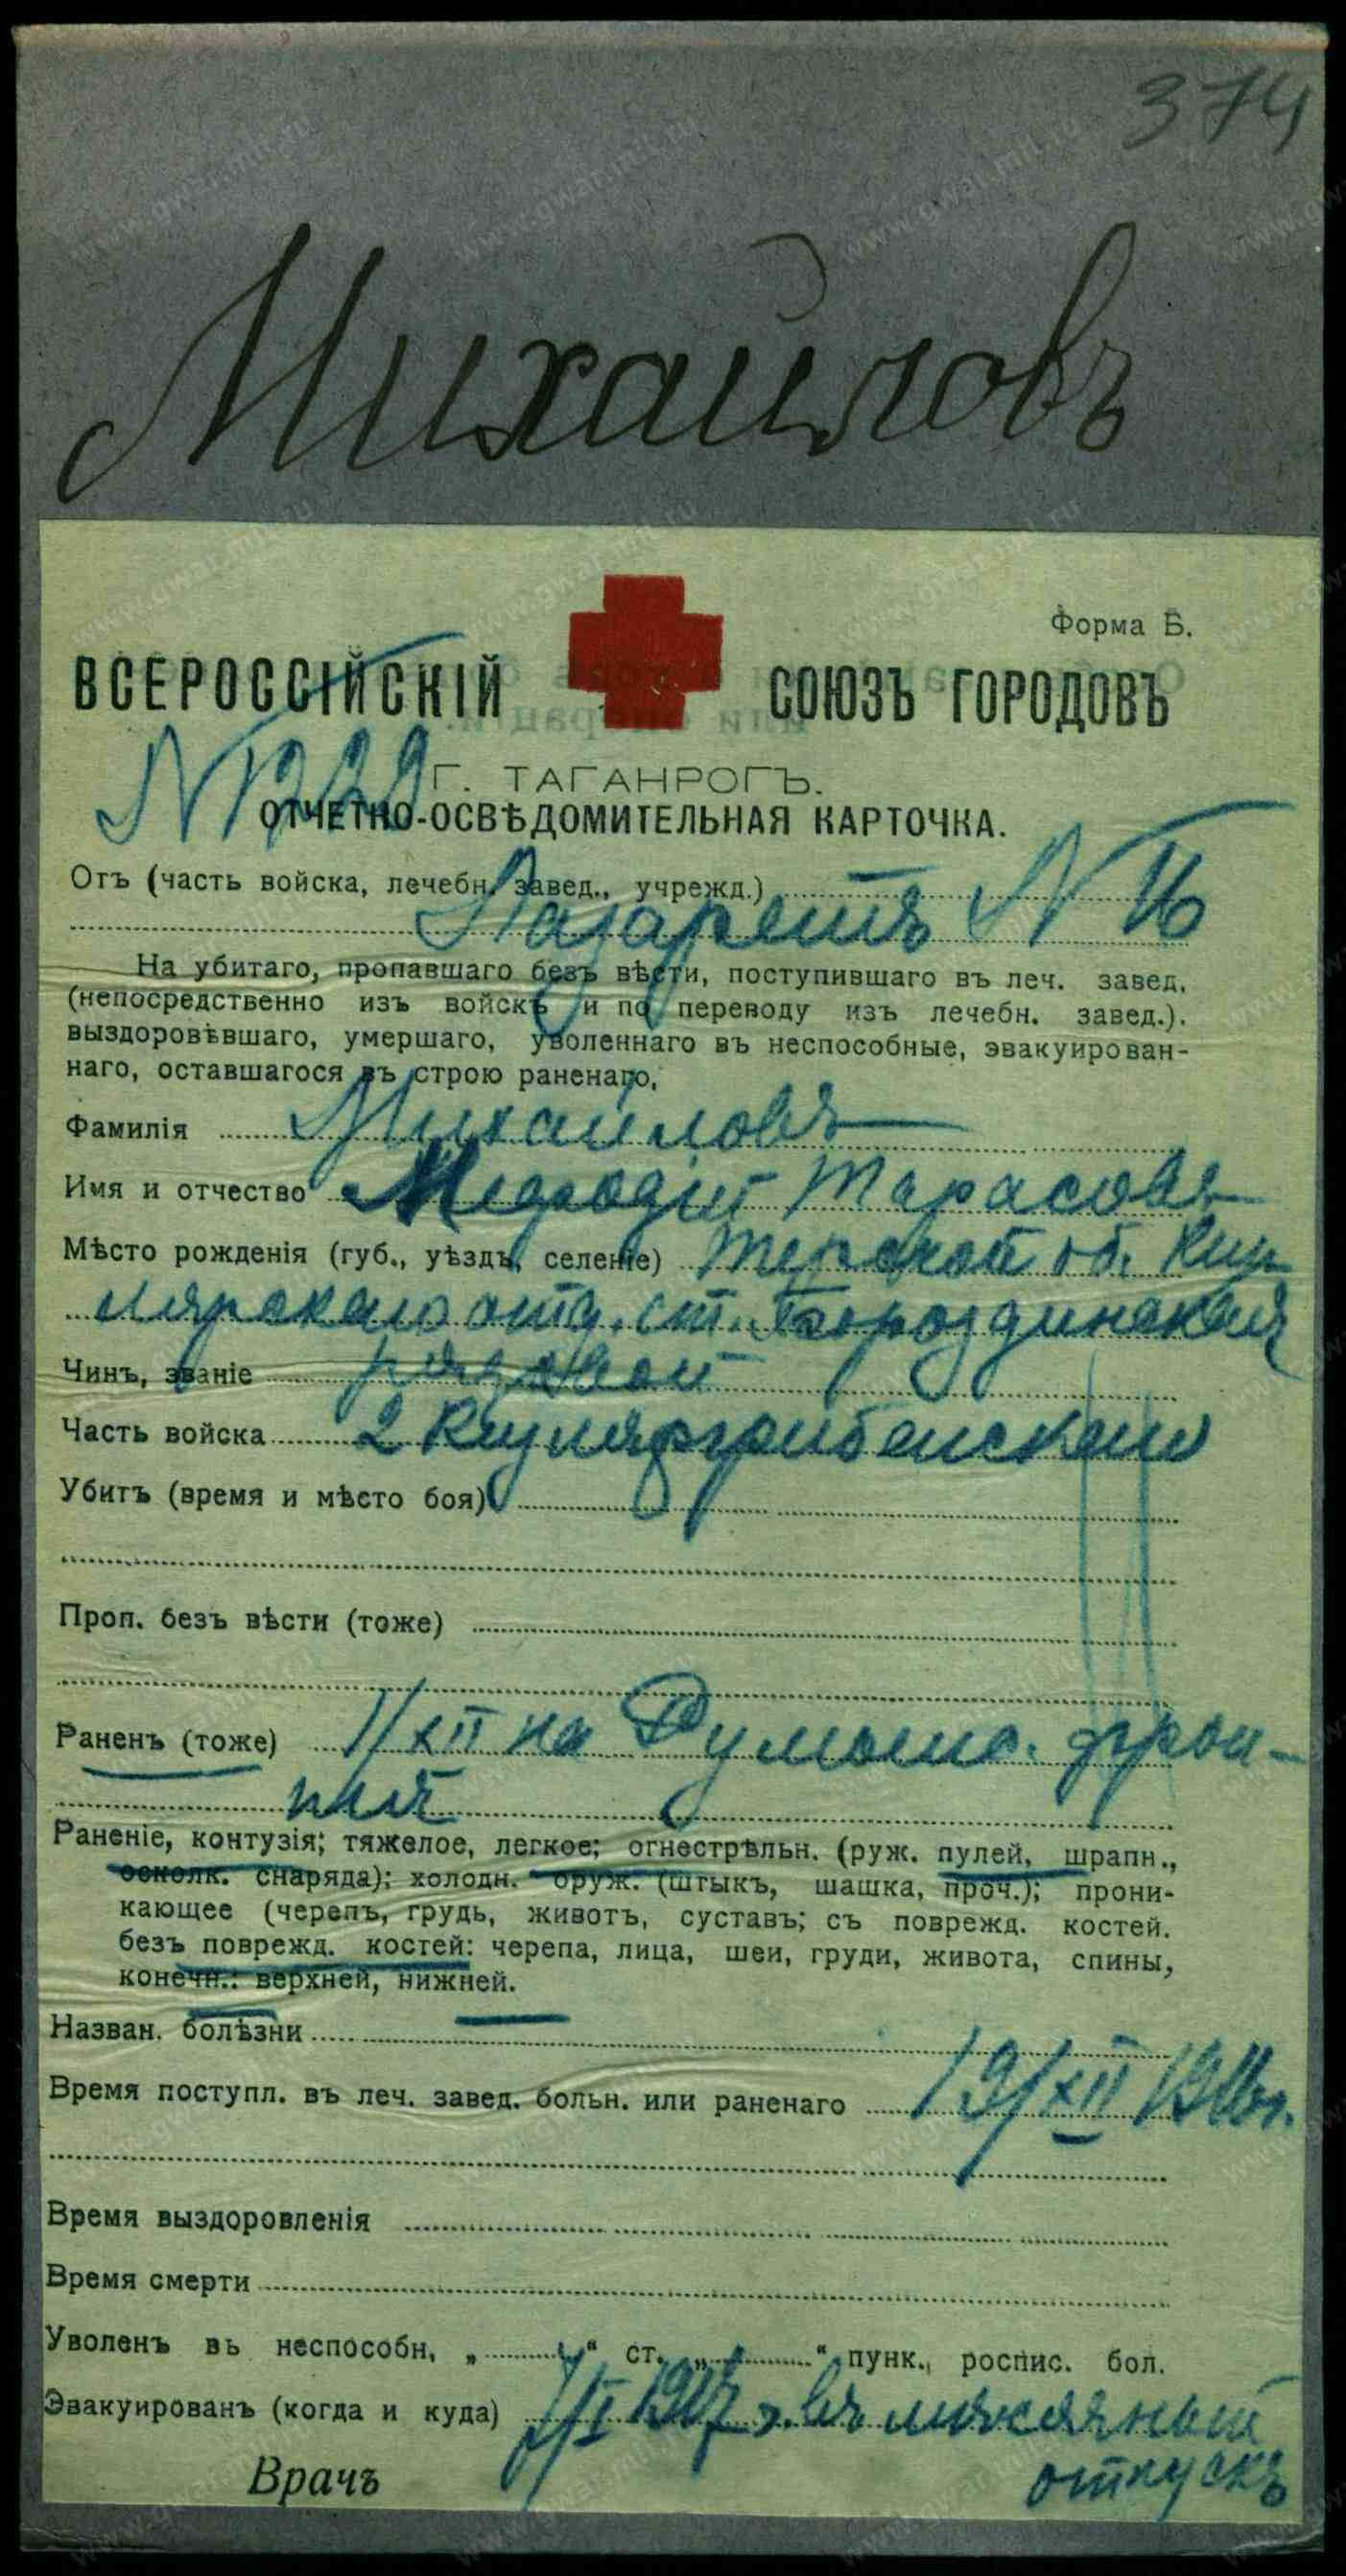 374
Михайловъ
Форма Б.
ВСЕРОССІЙСКІЙ СОЮЗЪ ГОРОДОВЪ
Г. ТАГАНРОГЪ.
ОТЧЕТНО-ОСВѢДОМИТЕЛЬНАЯ КАРТОЧКА.
Отъ (часть войска, лечебн. завед., учрежд.)
Лазаретъ N 16
На убитаго, пропавшаго безъ вѣсти, поступившаго въ леч. завед.
(непосредственно изъ войскъ и по переводу изъ лечебн. завед.).
выздоровѣвшаго, умершаго, уволеннаго въ неспособные, эвакуирован-
наго, оставшагося въ строю раненаго,
Фамилія Михайловъ
Имя и отчество Мефодій Тарасовъ
Мѣсто рожденія (губ., уѣздъ, селеніе) Терской об. Киз-
лярскаго отд. ст. Бороздинская
Чинъ, званіе рядовой
Часть войска 2 Кизляргребенскаго
Убитъ (время и мѣсто боя)
Проп. безъ вѣсти (тоже)
Раненъ (тоже) 1/XII на Румын. фрон-
тѣ
Раненіе, контузія; тяжелое, легкое; огнестрѣльн. (руж. пулей, шрапн.,
осколк. снаряда); холодн. оруж. (штыкъ, шашка, проч.); прони-
кающее (черепъ, грудь, животъ, суставъ; съ поврежд. костей.
безъ поврежд. костей: черепа, лица, шеи, груди, живота, спины,
конечн.: верхней, нижней.
Назван. болѣзни
Время поступл. въ леч. завед. больн. или раненаго 19/XII 1916г.
Время выздоровленія
Время смерти
Уволенъ вь неспособн, „ “ ст. „ “ пунк., роспис. бол.
Эвакуированъ (когда и куда) 7/I 1917 г. въ мѣсячный
Врачъ отпускъ